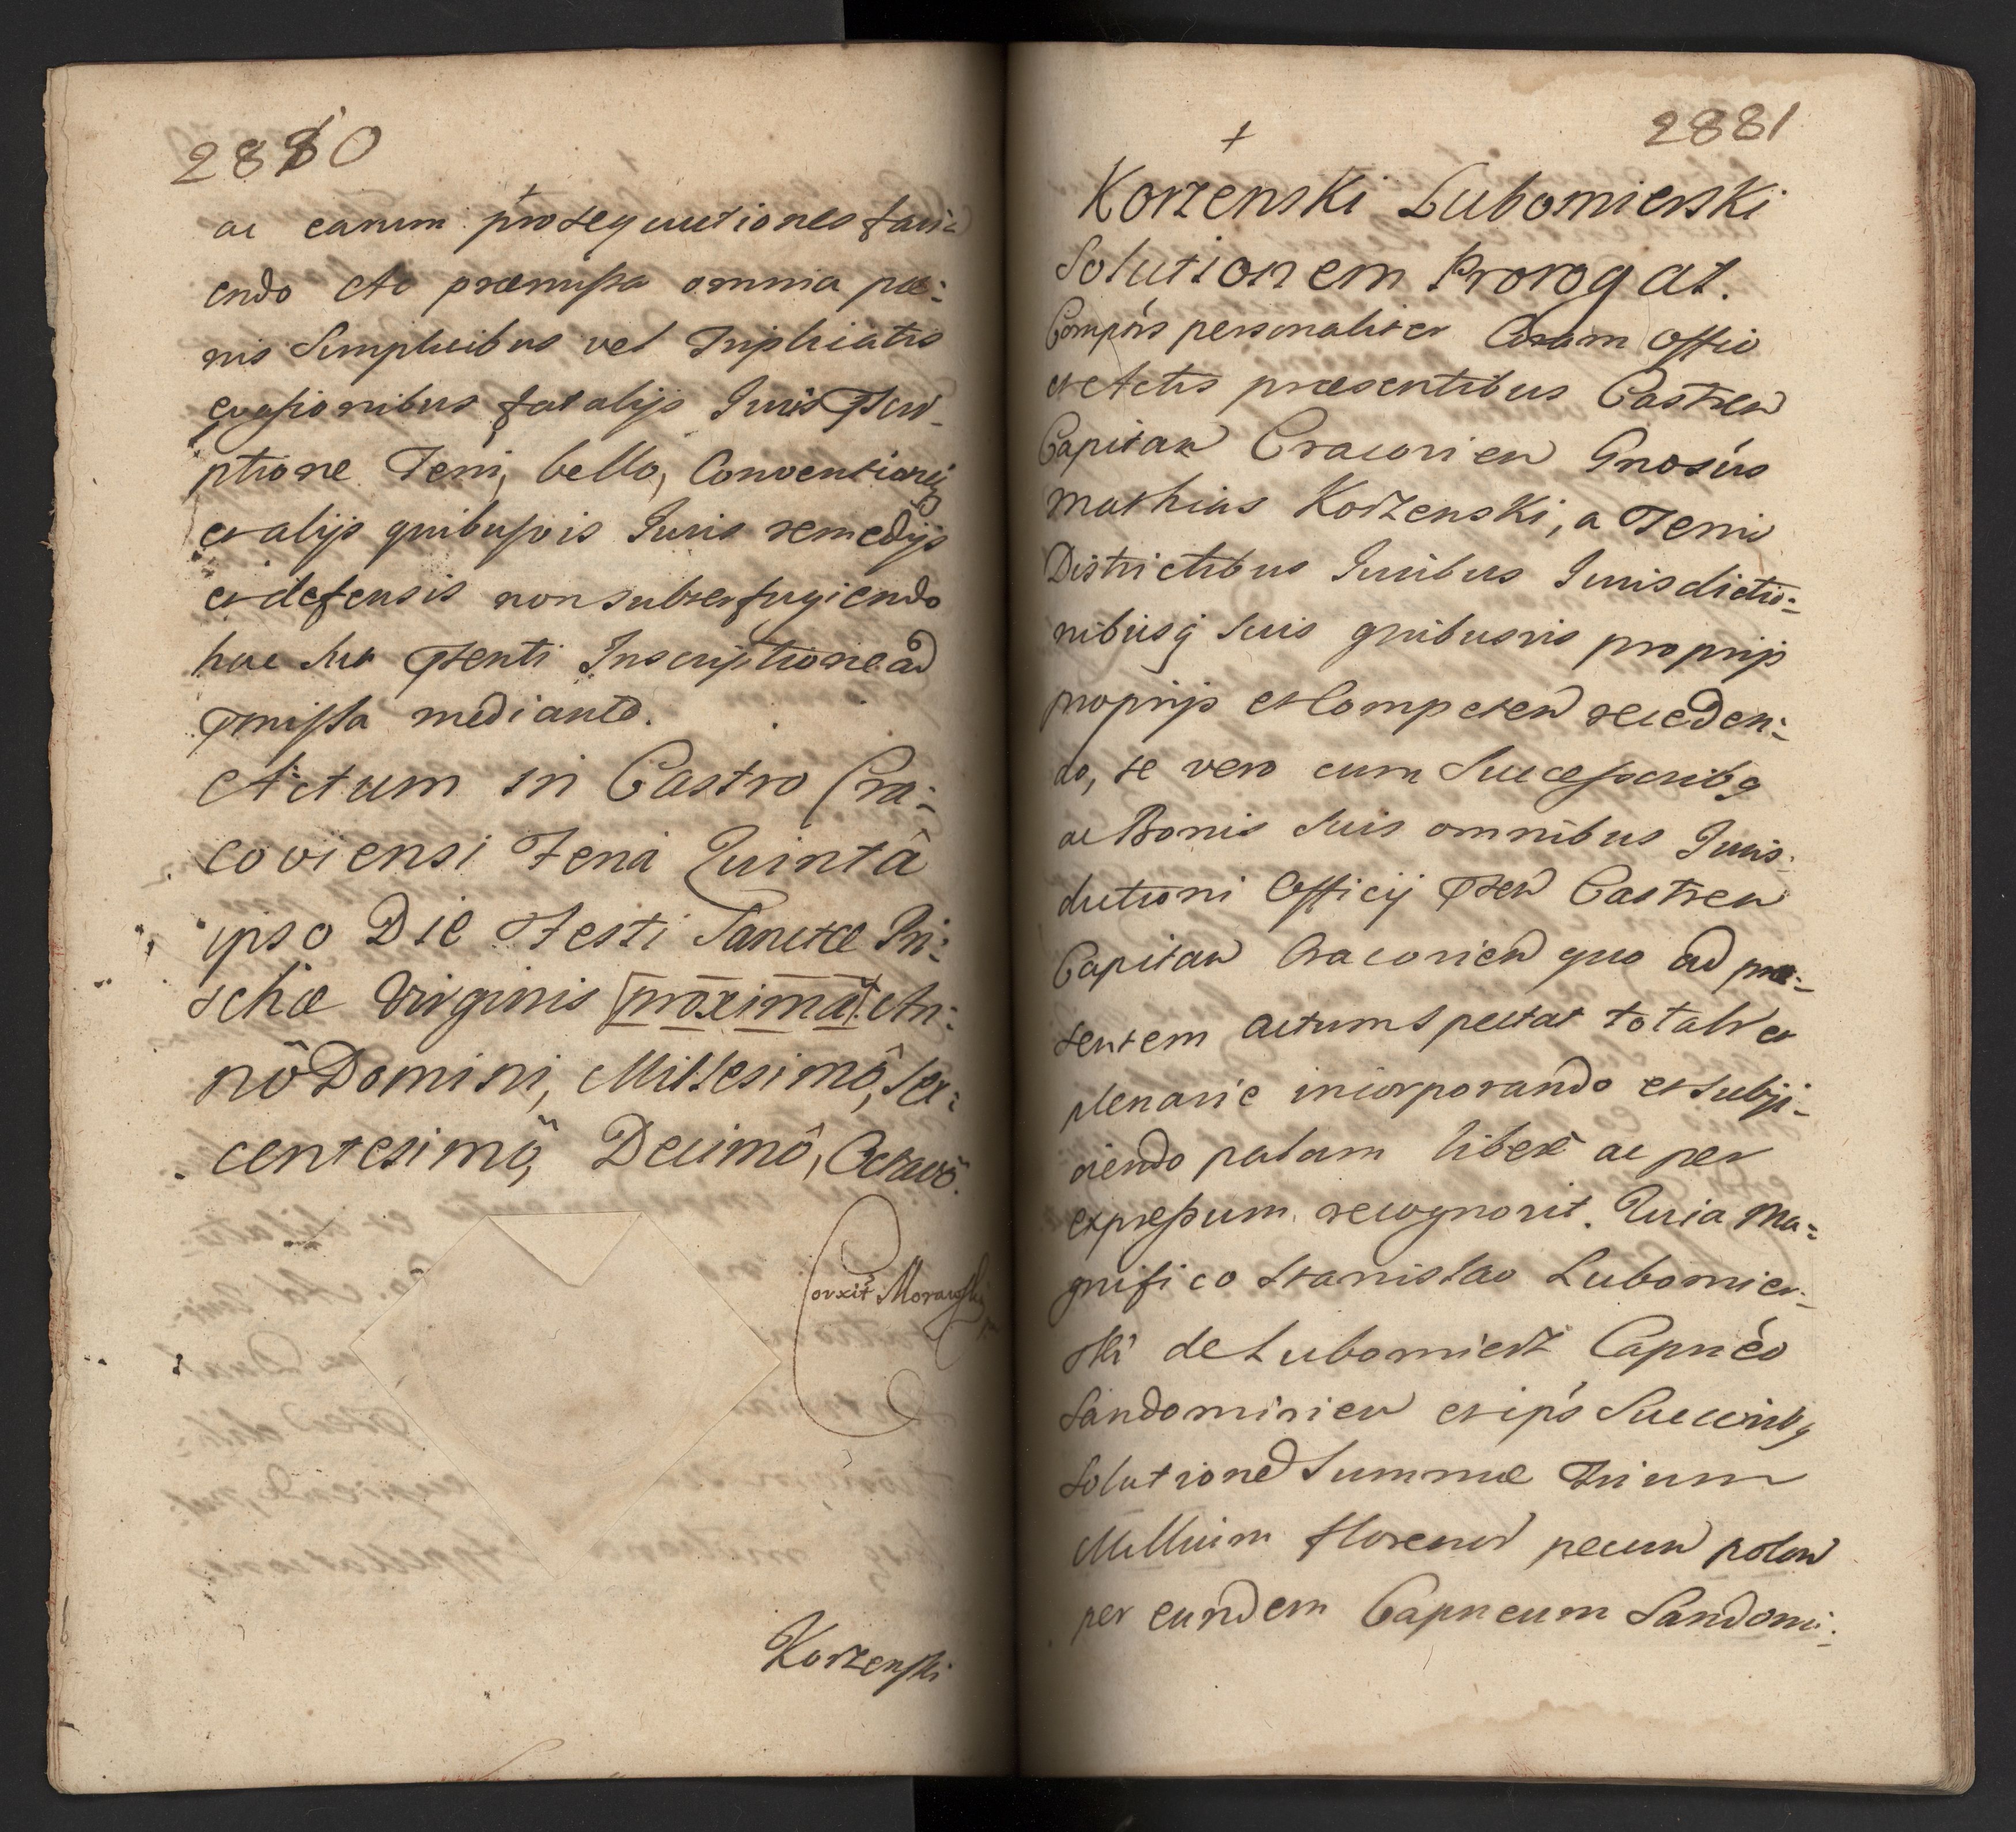 2880
ac earum prosequutiones faci=
endo Ac præmissa omnia pæ=
nis Simplicibus vel Triplicatis
evasionibus fatalijs Juris Pscri-
ptione Terrj, bello, Conventionej
et alijs quibusvis Juris remedijs
et defensis non subterfugiendo
hac sua Psenti Inscriptione ad
Pmissa mediante.
Actum in Castro Cra=
coviensi Feria Quintâ
ipso Die Festi Sanctæ Pri=
schæ Virginis proxima An=
nô Domini, Millesimô, Sex=
centesimô, Decimô, Octavô.
Corxit Morawski
Korzenski
2881
Korzenski Lubomierski
Solutionem Prorogat.
Comp̃rs personaliter Coram Offio
et Actis præsentibus Castren
Capitan Cracovien Gnosus
Mathias Korzenski, a Terris
Districtibus Juribus Jurisdictio=
nibusq suis quibusvis proprijs
proprijs et Competen receden=
do, se vero cum Successoribq
ac Bonis suis omnibus Juris-
dictioni Officij Psen Castren
Capitan Cracovien quo ad præ=
sentem actum spectat totalr et
plenarie incorporando et subji-
ciendo palam libere ac per
expressum recognovit. Quia Ma=
gnifico Stanislao Lubomier=
ski de Lubomierz Capneo
Sandomirien et ip̃s Succoribq
Solutione Summæ Trium
Millium Florenor pecun polon
per eundem Capneum Sandomi=